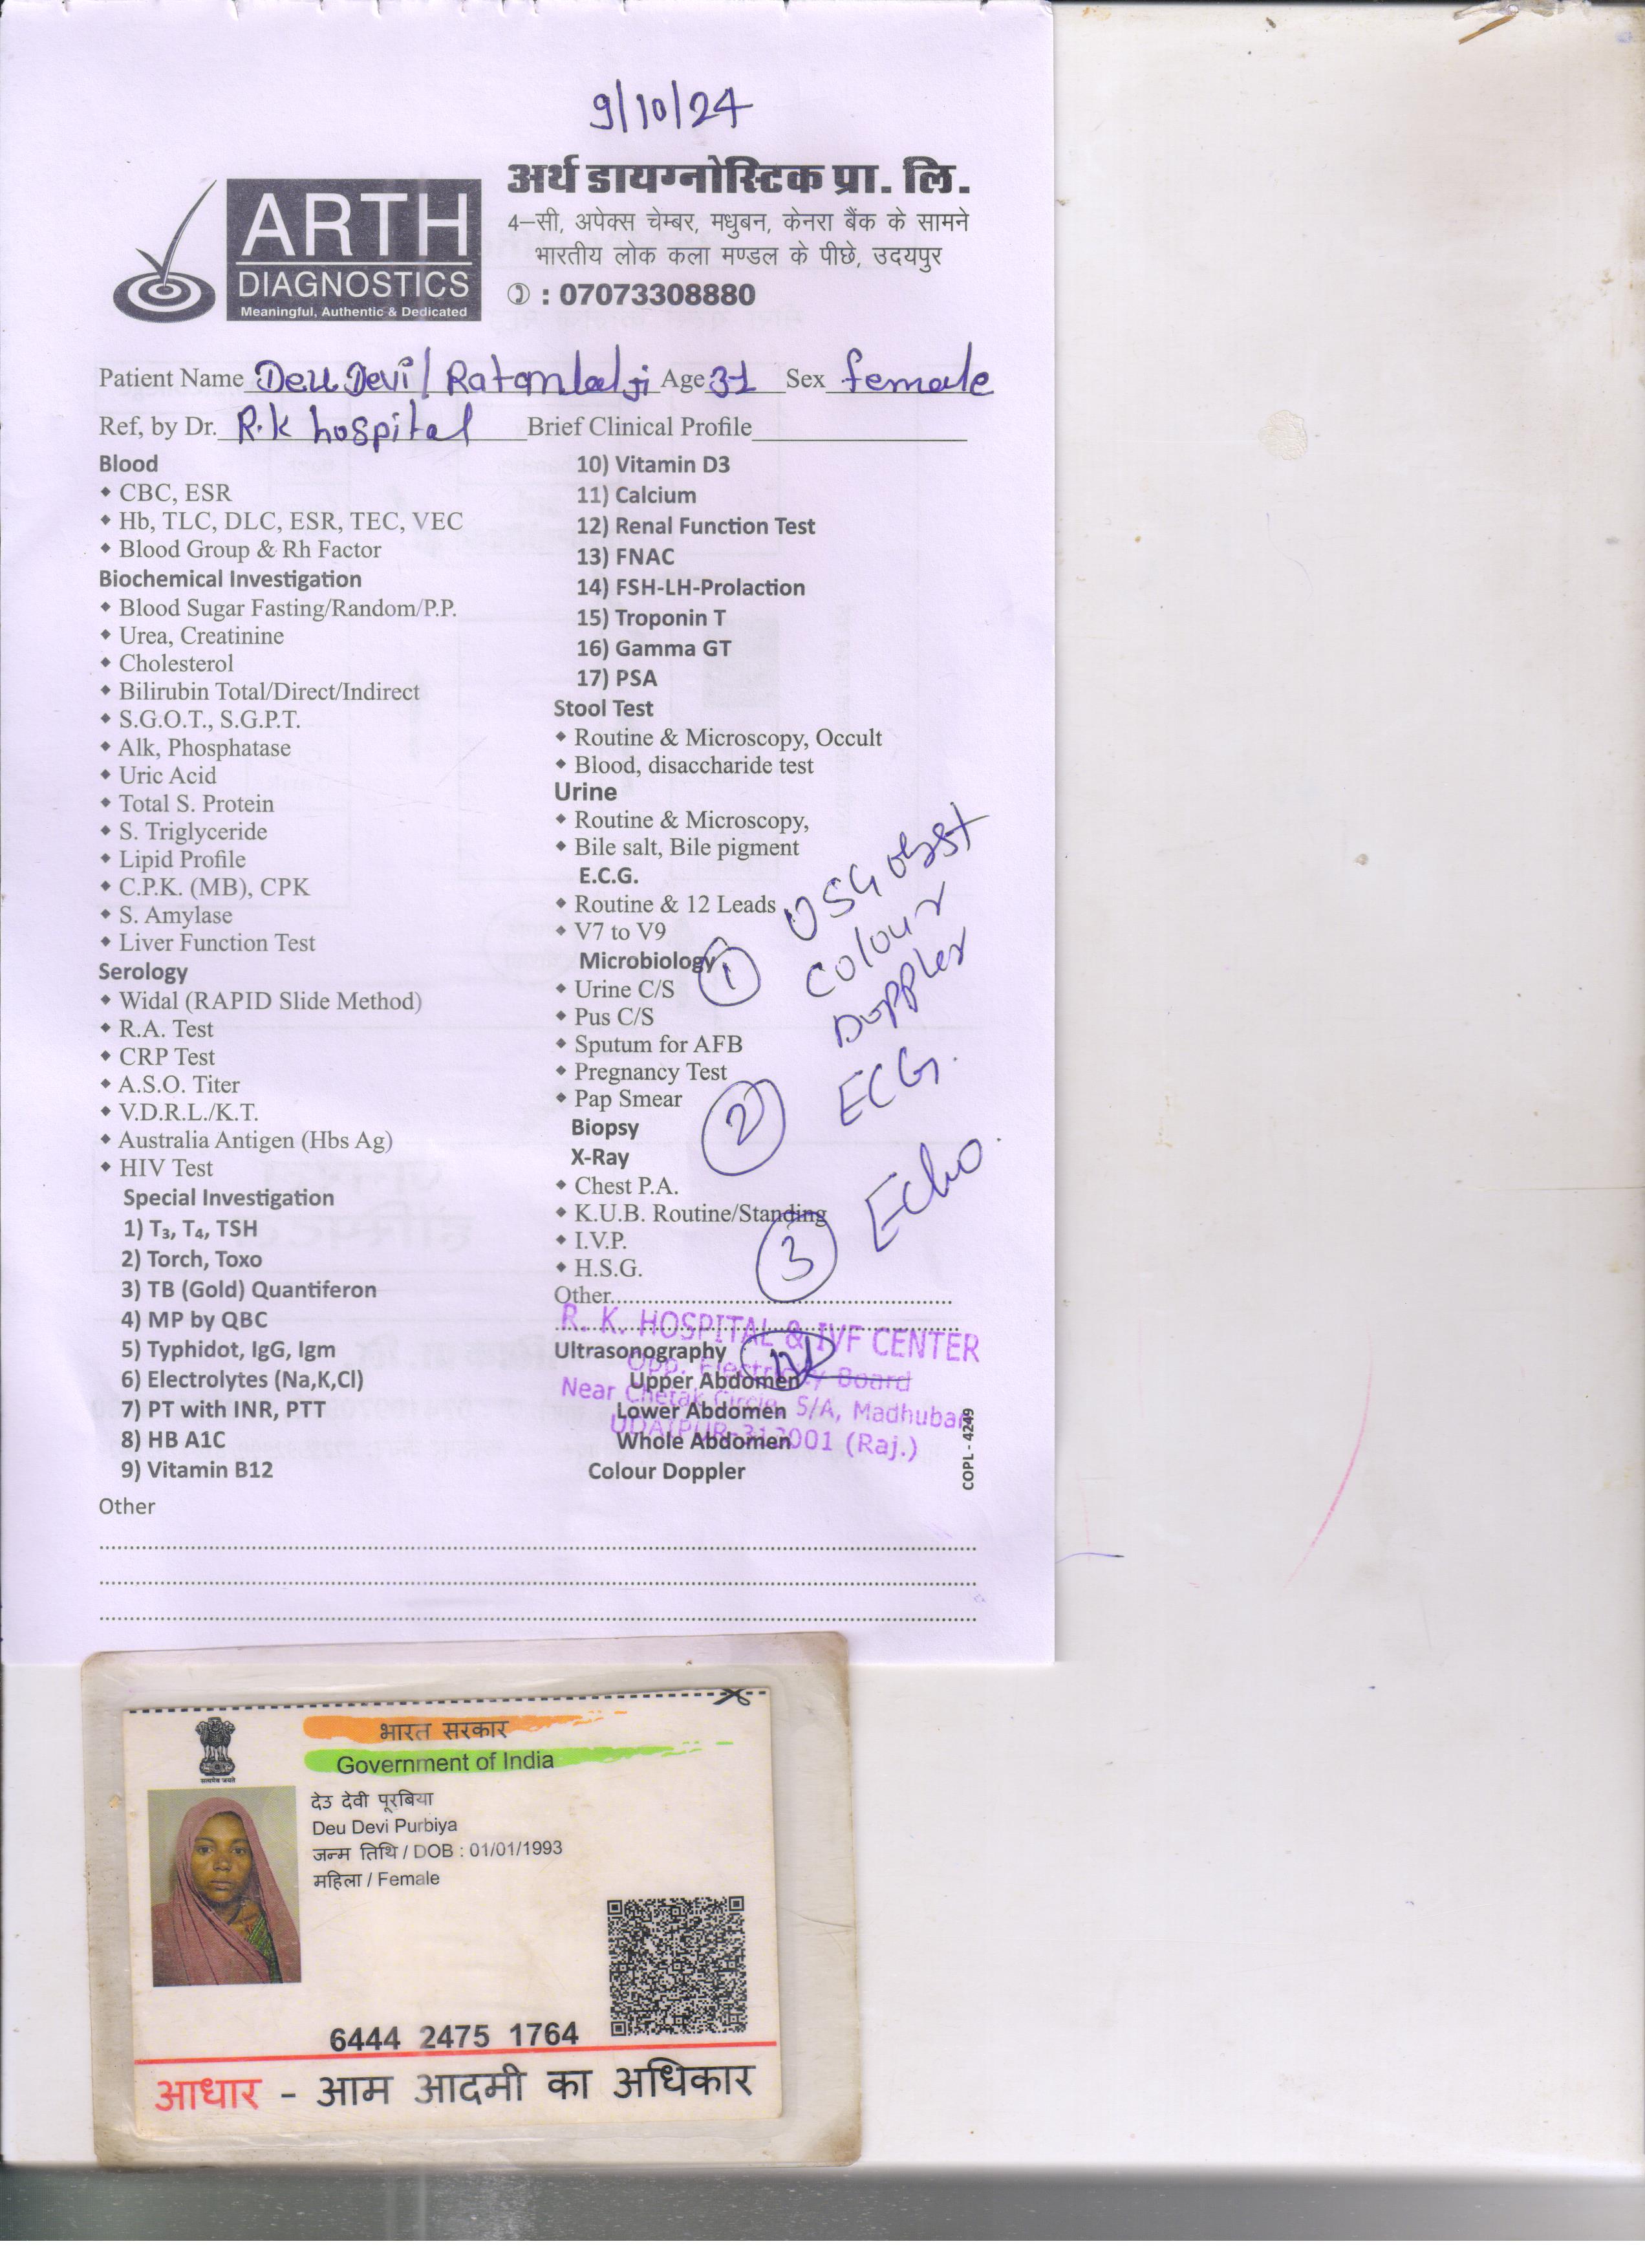 9/10/24
ARTH
DIAGNOSTICS
Meaningful, Authentic & Dedicated
अर्थ डायग्नोस्टिक प्रा. लि.
4–सी, अपेक्स चेम्बर, मधुबन, केनरा बैंक के सामने
भारतीय लोक कला मण्डल के पीछे, उदयपुर
: 07073308880
Patient Name Deu Devi / Ratanlalji Age 31 Sex female
Ref, by Dr. R.k hospital Brief Clinical Profile
Blood
• CBC, ESR
• Hb, TLC, DLC, ESR, TEC, VEC
• Blood Group & Rh Factor
Biochemical Investigation
• Blood Sugar Fasting/Random/P.P.
• Urea, Creatinine
• Cholesterol
• Bilirubin Total/Direct/Indirect
• S.G.O.T., S.G.P.T.
• Alk, Phosphatase
• Uric Acid
• Total S. Protein
• S. Triglyceride
• Lipid Profile
• C.P.K. (MB), CPK
• S. Amylase
• Liver Function Test
Serology
• Widal (RAPID Slide Method)
• R.A. Test
• CRP Test
• A.S.O. Titer
• V.D.R.L./K.T.
• Australia Antigen (Hbs Ag)
• HIV Test
Special Investigation
1) T₃, T₄, TSH
2) Torch, Toxo
3) TB (Gold) Quantiferon
4) MP by QBC
5) Typhidot, IgG, Igm
6) Electrolytes (Na,K,Cl)
7) PT with INR, PTT
8) HB A1C
9) Vitamin B12
Other
10) Vitamin D3
11) Calcium
12) Renal Function Test
13) FNAC
14) FSH-LH-Prolaction
15) Troponin T
16) Gamma GT
17) PSA
Stool Test
• Routine & Microscopy, Occult
• Blood, disaccharide test
Urine
• Routine & Microscopy,
• Bile salt, Bile pigment
E.C.G.
• Routine & 12 Leads
• V7 to V9
Microbiology
• Urine C/S
• Pus C/S
• Sputum for AFB
• Pregnancy Test
• Pap Smear
Biopsy
X-Ray
• Chest P.A.
• K.U.B. Routine/Standing
• I.V.P.
• H.S.G.
Other
Ultrasonography
Upper Abdomen
Lower Abdomen
Whole Abdomen
Colour Doppler
COPL - 4249
1 USG obst
Colour
Doppler
2 ECG.
3 Echo.
R. K. HOSPITAL & IVF CENTER
Opp. Electricity Board
Near Chetak Circle, 5/A, Madhuban
UDAIPUR-313001 (Raj.)
सत्यमेव जयते
भारत सरकार
Government of India
देउ देवी पूरबिया
Deu Devi Purbiya
जन्म तिथि / DOB : 01/01/1993
महिला / Female
6444 2475 1764
आधार - आम आदमी का अधिकार